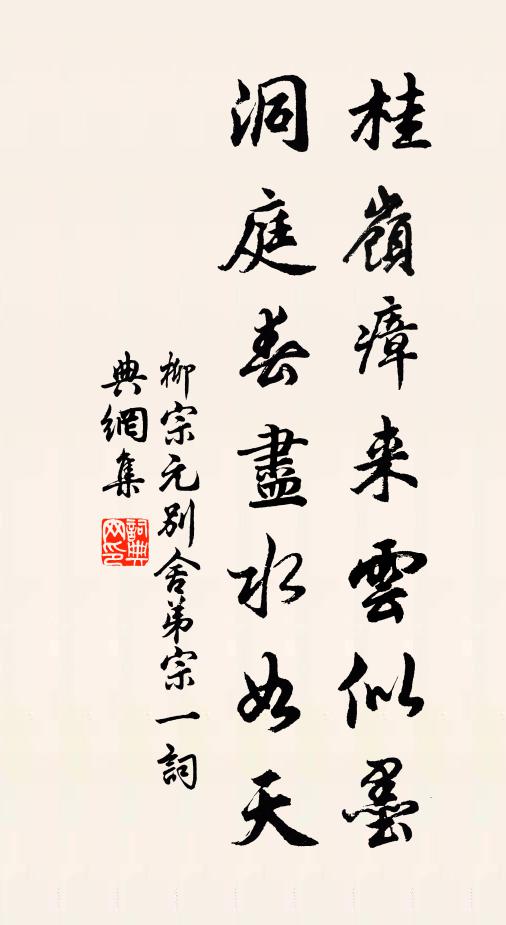 桂嶺瘴来雲似墨
洞庭春盡水如天
柳宗元別舍弟宗一詞
典網集
詞典网印